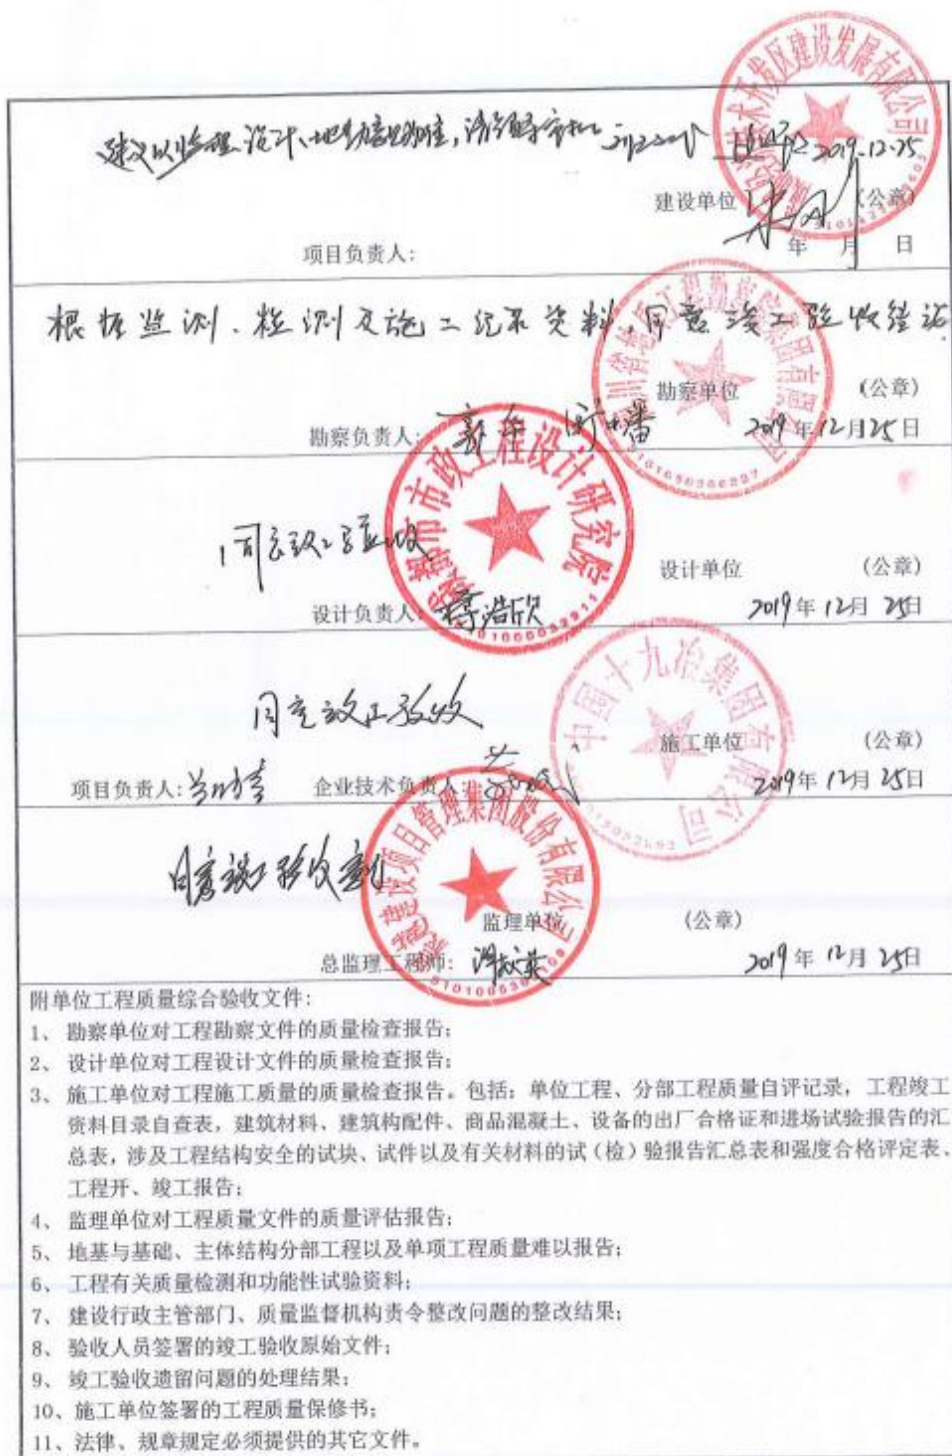 建议以监理、设计、地勘意见为准，请领导审批
2019.12.25
建设单位 (公章)
项目负责人: 年 月 日
根据监测、检测及施工纪录资料,同意竣工验收结论
勘察单位 (公章)
勘察负责人: 2019年12月25日
成都市市政工程设计研究院
同意竣工验收
设计单位 (公章)
设计负责人: 浩欣 2019年12月25日
中国十九冶集团有限公司
同意竣工验收
施工单位 (公章)
项目负责人: 企业技术负责人: 2019年12月25日
建设项目管理集团股份有限公司
同意竣工验收
监理单位 (公章)
总监理工程师: 2019年12月25日
附单位工程质量综合验收文件:
1、 勘察单位对工程勘察文件的质量检查报告;
2、 设计单位对工程设计文件的质量检查报告;
3、 施工单位对工程施工质量的质量检查报告。包括: 单位工程、分部工程质量自评记录, 工程竣工
资料目录自查表, 建筑材料、建筑构配件、商品混凝土、设备的出厂合格证和进场试验报告的汇
总表, 涉及工程结构安全的试块、试件以及有关材料的试(检)验报告汇总表和强度合格评定表、
工程开、竣工报告;
4、 监理单位对工程质量文件的质量评估报告;
5、 地基与基础、主体结构分部工程以及单项工程质量难以报告;
6、 工程有关质量检测和功能性试验资料;
7、 建设行政主管部门、质量监督机构责令整改问题的整改结果;
8、 验收人员签署的竣工验收原始文件;
9、 竣工验收遗留问题的处理结果;
10、施工单位签署的工程质量保修书;
11、法律、规章规定必须提供的其它文件。